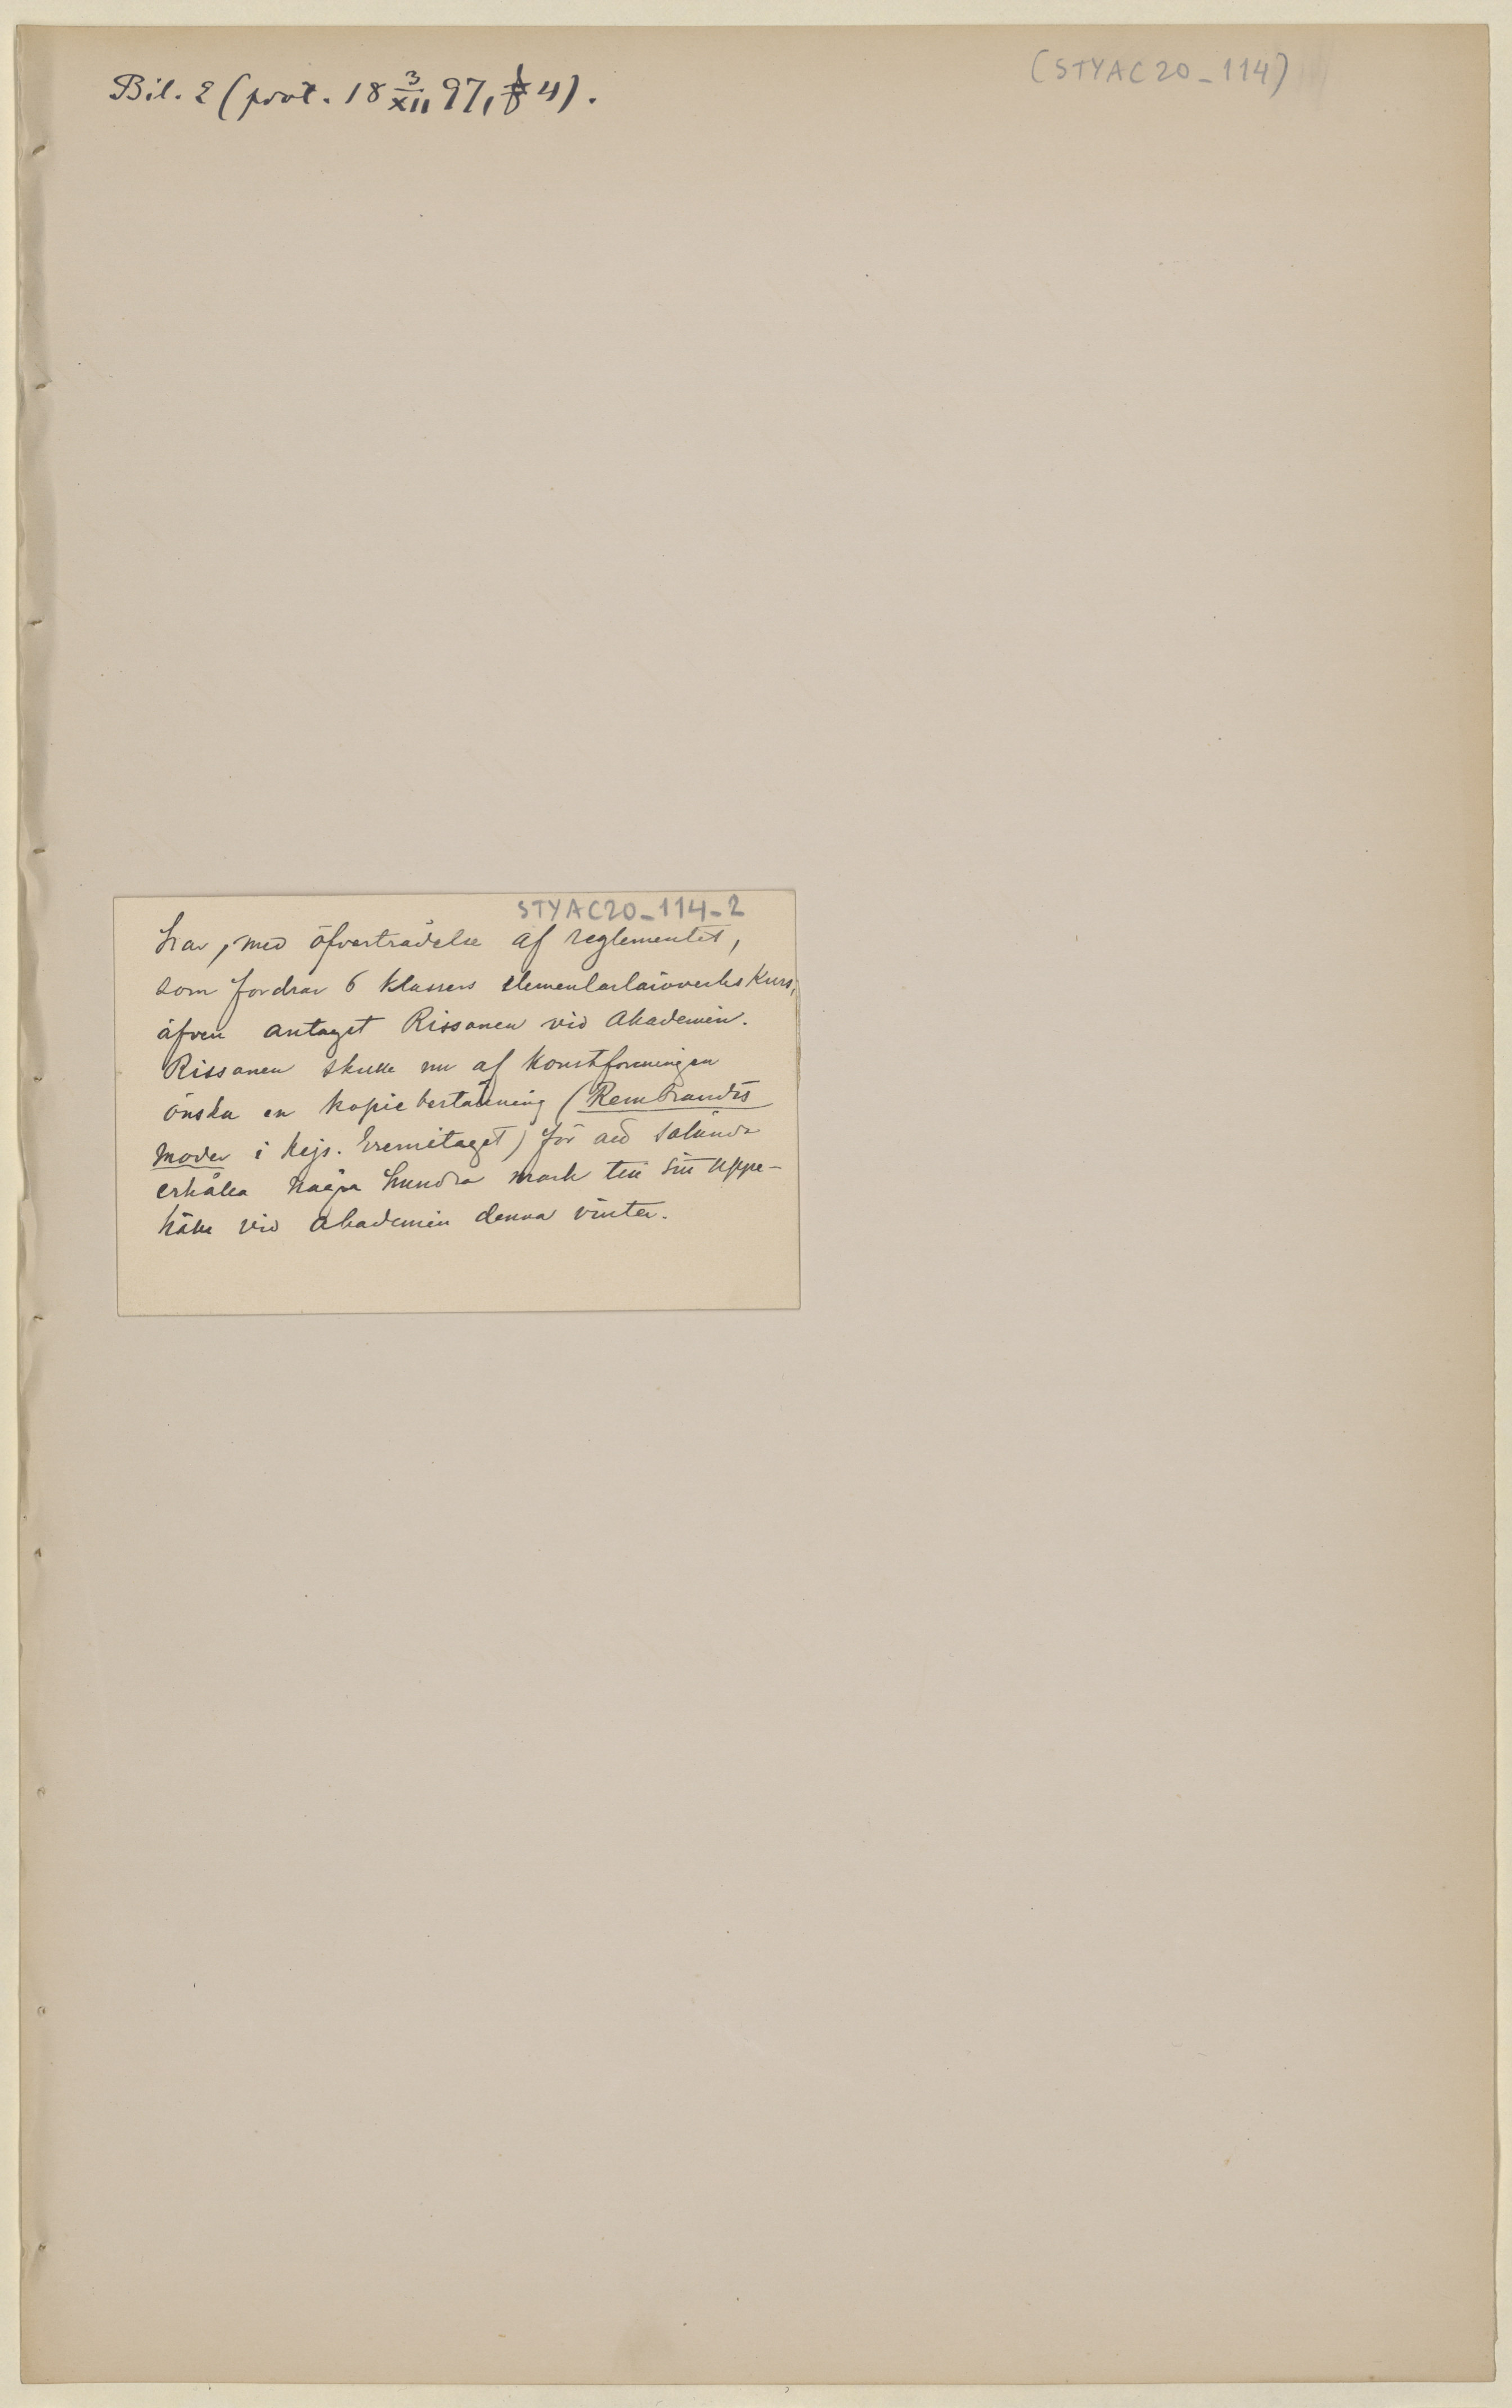 Bil. 2 (prot. 18 3/XII 97, § 4).
(STYAC20_114)
STYAC20_114_2
har, med öfverträdelse af reglementet,
som fordrar 6 klassers elementarläroverks kurs,
äfven antaget Rissanen vid Akademin.
Rissanen skulle nu af Konstföreningen
önska en kopiebeställning (Rembrandts
moder i Kejs. Eremitaget) för att sålunda
erhålla några hundra mark till sitt uppe-
hälle vid Akademin denna vinter.